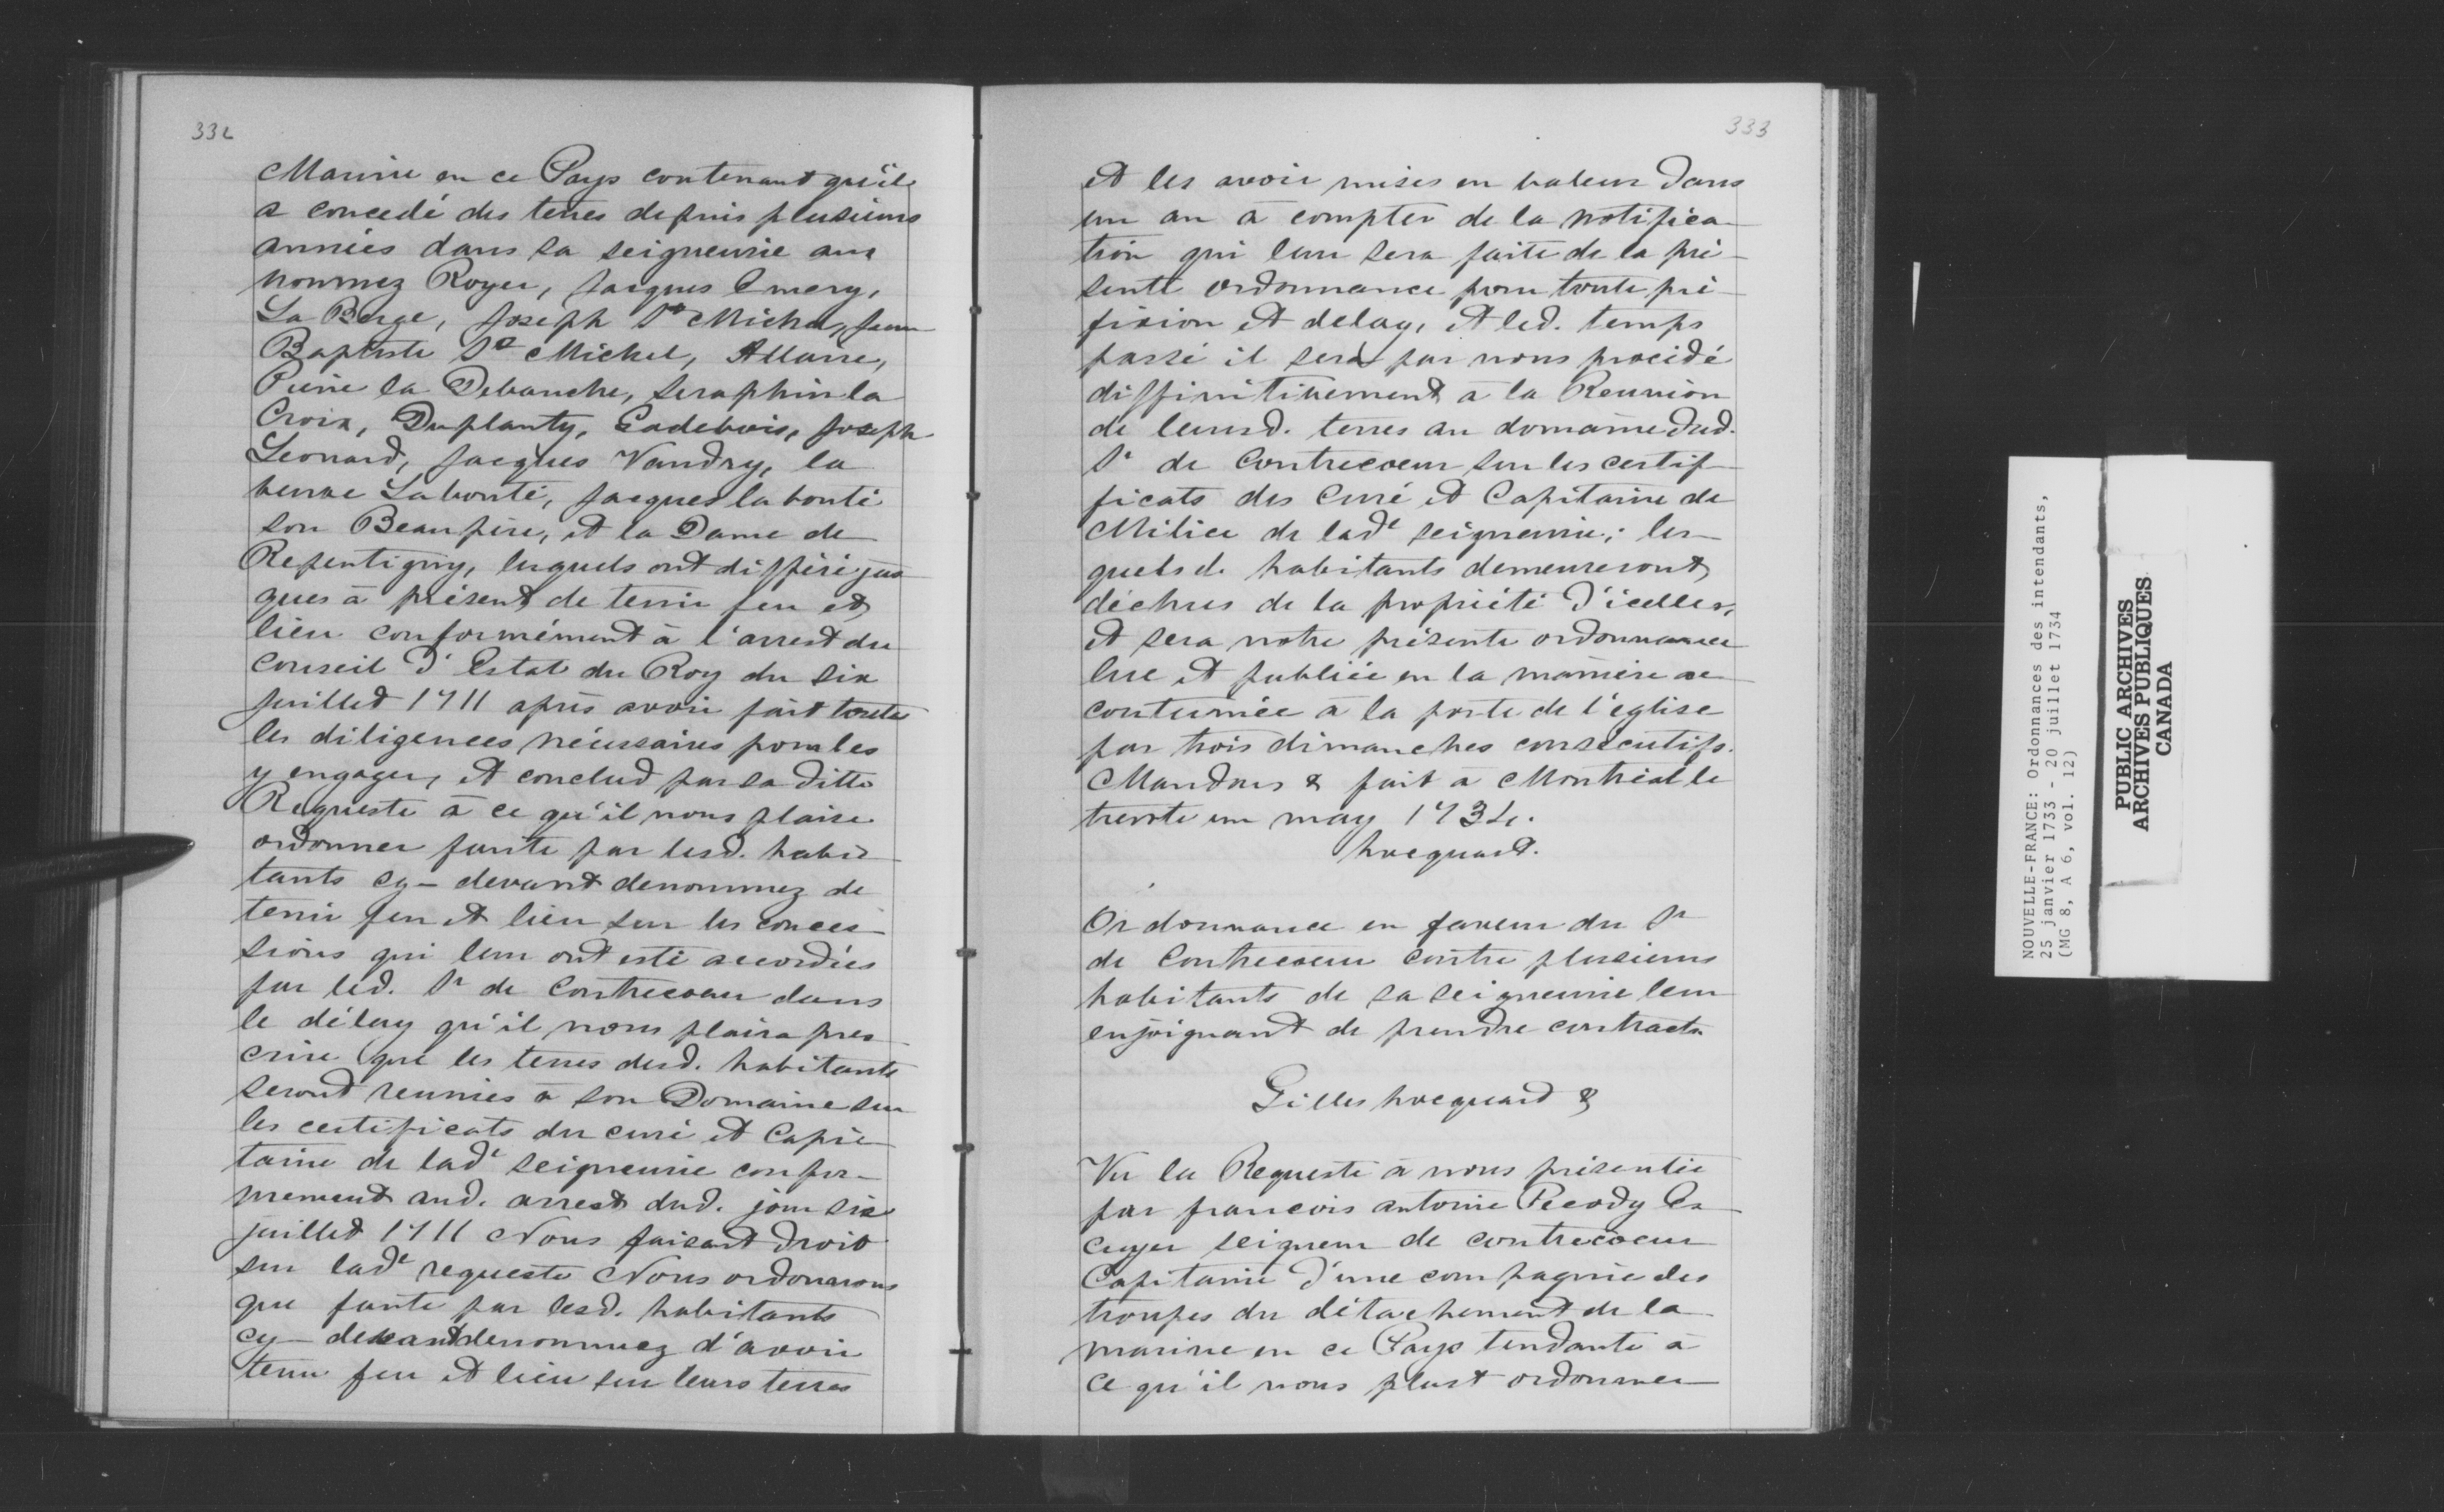 332
Marine en ce Pays contenant qu'il
a concedé des terres depuis plusieurs
années dans sa seigneurie aux
nommez Royer, Jacques Emery,
La Berge, Joseph St Michel, Jean
Baptiste St Michel, Allaire,
Pierre la Debauche, Seraphin la
Croix, Duplanty, Gadebois, Joseph
Leonard, Jacques Vandry, la
veuve Labonté, Jacques la bonté
son Beaupère, et la Dame de
Repentigny, lesquels ont différé jus
ques à présent de tenir feu et
lieu conformément à l'arrest du
Conseil d'Estat du Roy du six
juillet 1711 après avoir fait toutes
les diligences nécessaires pour les
y engager, et conclud par sa ditte
Requeste à ce qu'il nous plaise
ordonner faute par lesd. habi
tants cy-devant denommez de
tenir feu et lieu sur les conces-
sions qui leur ont esté accordées
par led. Sr de Contrecoeur dans
le délay qu'il nous plaira pres
crire que les terres desd. habitants
seront reunies à son Domaine sur
les certificats du curé et Capi-
taine de lade seigneurie confor-
mement aud. arrest dud. jour six
juillet 1711 Nous faisant droit
sur lade requeste Nous ordonnons
que faute par lesd. habitants
cy-devant denommez d'avoir
tenu feu et lieu sur leurs terres
333
et les avoir mises en valeur dans
un an à compter de la notifica-
tion qui leur sera faite de la pré-
sente ordonnance pour toute pré-
fixion et delay, et led. temps
passé il sera par nous procédé
diffinitivement à la Reunion
de leursd. terres au domaine dud.
Sr de Contrecoeur sur les certif-
ficats des Curé et Capitaine de
Milice de lade seigneurie; les-
quels d. habitants demeureront
déchus de la propriété d'icelles,
et sera notre présente ordonnance
lue et publiée en la manière ac
coutumée à la porte de l'église
par trois dimanches consécutifs.
Mandons & fait à Montréal le
trente un may 1734.
hocquart.
Ordonnance en faveur du Sr
de Contrecoeur contre plusieurs
habitants de sa seigneurie leur
enjoignant de prendre contracts
Gilles hocquard &
Vu la Requeste à nous présentée
par francois antoine Pecody Es
cuyer seigneur de contrecoeur
Capitaine d'une compagnie des
troupes du détachement de la
marine en ce Pays tendante à
ce qu'il nous plust ordonner
NOUVELLE-FRANCE: Ordonnances des intendants,
25 janvier 1733 - 20 juillet 1734
(MG 8, A 6, vol. 12)
PUBLIC ARCHIVES
ARCHIVES PUBLIQUES
CANADA